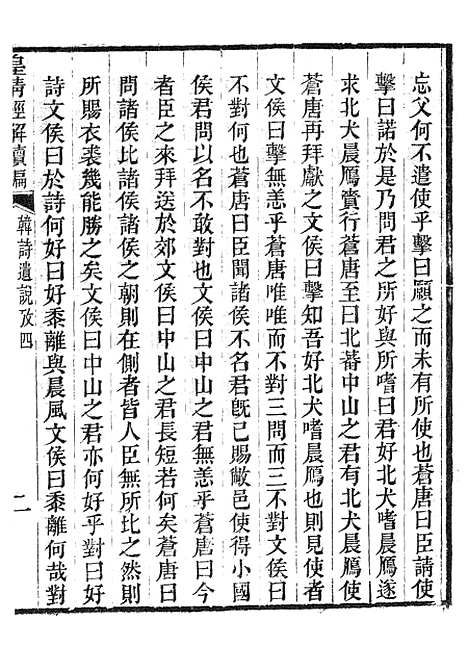 忘父何不遣使乎擊曰願之而未有所使也蒼唐曰臣請使
擊曰諾於是乃問君之所好與所嗜曰君好北犬嗜晨鴈遂
求北犬晨鴈賫行蒼唐至曰北蕃中山之君有北犬晨鴈使
蒼唐再拜獻之文侯曰擊知吾好北犬嗜晨鴈也則見使者
文侯曰擊無恙乎蒼唐唯唯而不對三問而三不對文侯曰
不對何也蒼唐曰臣聞諸侯不名君旣已賜敝邑使得小國
侯君問以名不敢對也文侯曰中山之君無恙乎蒼唐曰今
者臣之來拜送於郊文侯曰中山之君長短若何矣蒼唐曰
問諸侯比諸侯諸侯之朝則在側者皆人臣無所比之然則
所賜衣裘幾能勝之矣文侯曰中山之君亦何好乎對曰好
詩文侯曰於詩何好曰好黍離與晨風文侯曰黍離何哉對
皇清經解續編
韓詩遺說攷四
二